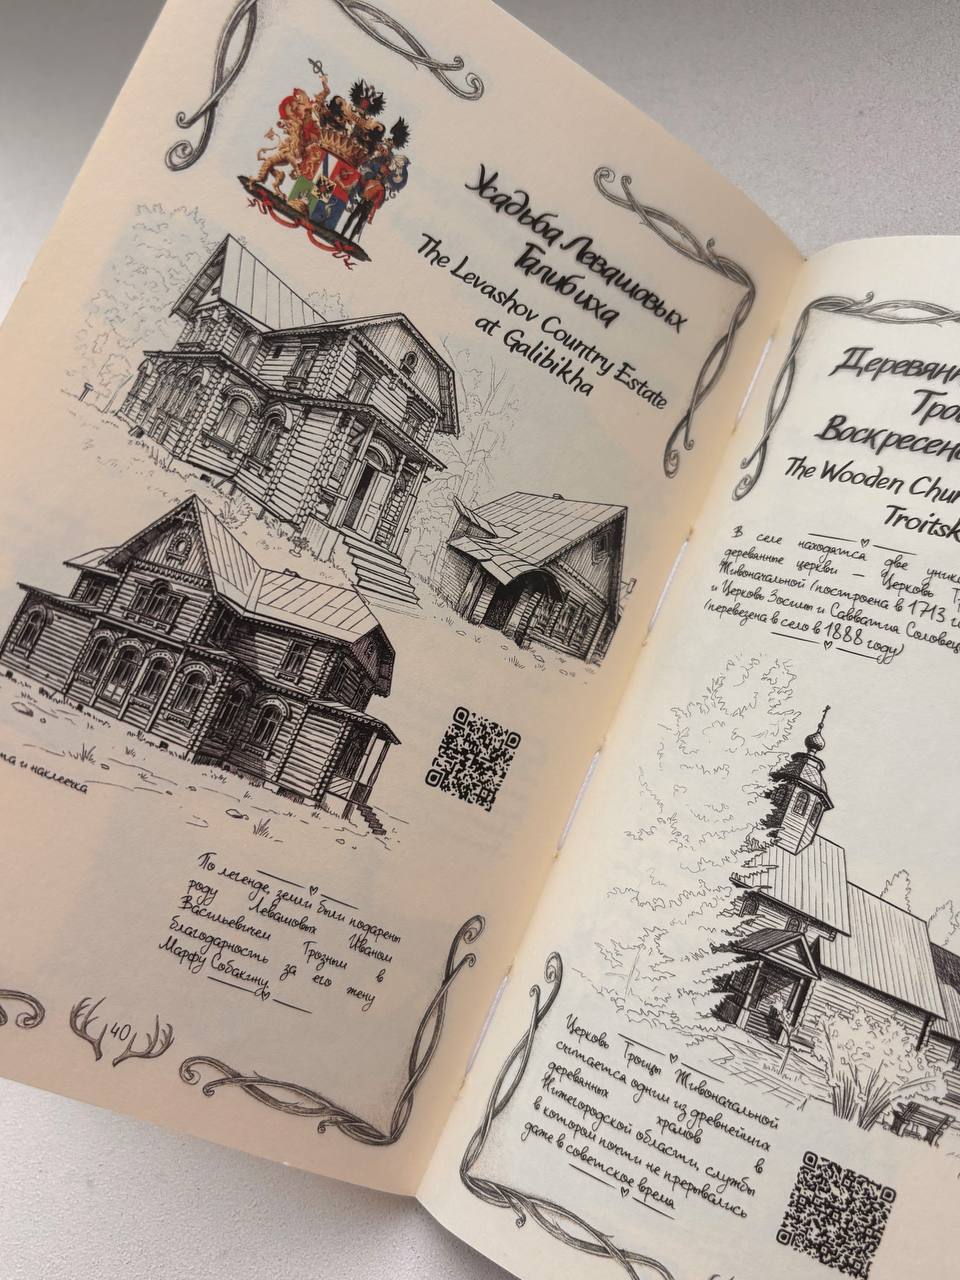 Усадьба Левашовых
Галибиха
The Levashov Country Estate
at Galibikha
и наклеечка
По легенде, земли были подарены
роду Левашовых Иваном
Васильевичем Грозным в
благодарность за его жену
Марфу Собакину
40
The Wooden
В селе находятся две
деревянные церкви – Церковь
Живоначальной (построена в 1713
и Церковь Зосимы и Савватия
(перевезена в село в 1888 году)
Церковь Троицы Живоначальной
считается одним из древнейших
деревянных храмов в
Нижегородской области, службы
в котором почти не прерывались
даже в советское время